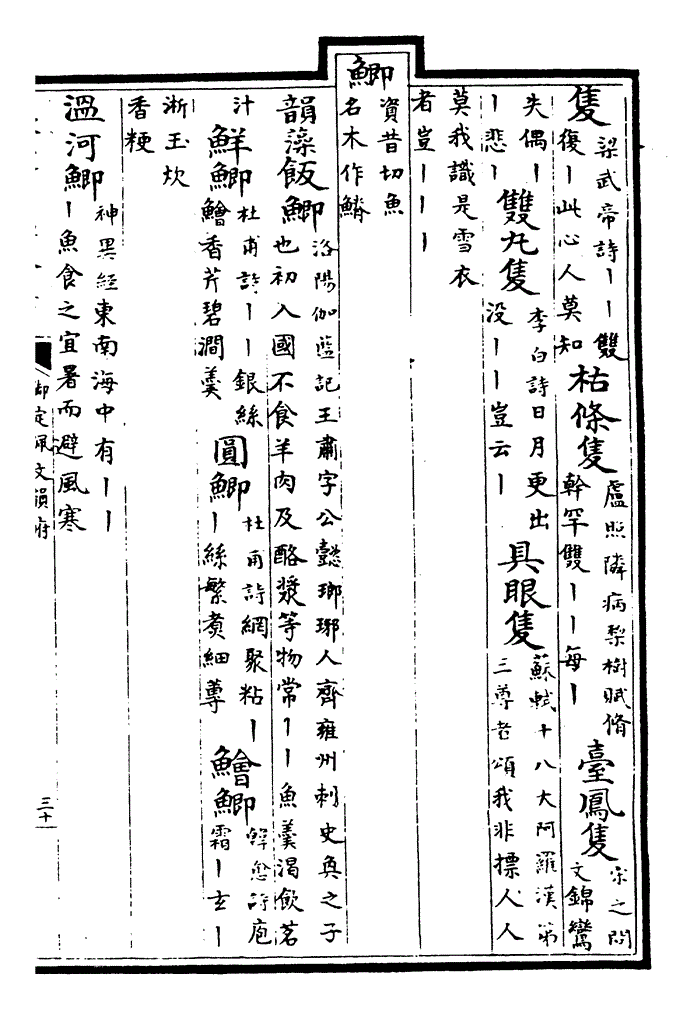 隻梁武帝詩丨丨雙復丨此心人莫知枯條隻盧照隣病梨樹賦脩幹罕雙丨丨每丨臺鳳隻宋之問文錦鸞
失偶丨丨悲丨雙丸隻李白詩日月更出没丨丨豈云丨具眼隻蘇軾十八大阿羅漢第三尊者頌我非標人人
莫我識是雪衣者豈丨丨丨
鯽資昔切魚名木作鰿
韻藻飯鯽洛陽伽藍記王肅字公懿瑯琊人齊雍州刺史奐之子也初入國不食羊肉及酪漿等物常丨丨魚羹渴飲茗
汁鮮鯽杜甫詩丨丨銀絲鱠香芹碧澗羹圓鯽杜甫詩網聚粘丨丨絲繁煮細蓴鱠鯽韓愈詩庖霜丨玄丨
淅玉炊香粳
溫河鯽神異經東南海中有丨丨丨魚食之宜暑而避風寒
御定佩文韻府
三十